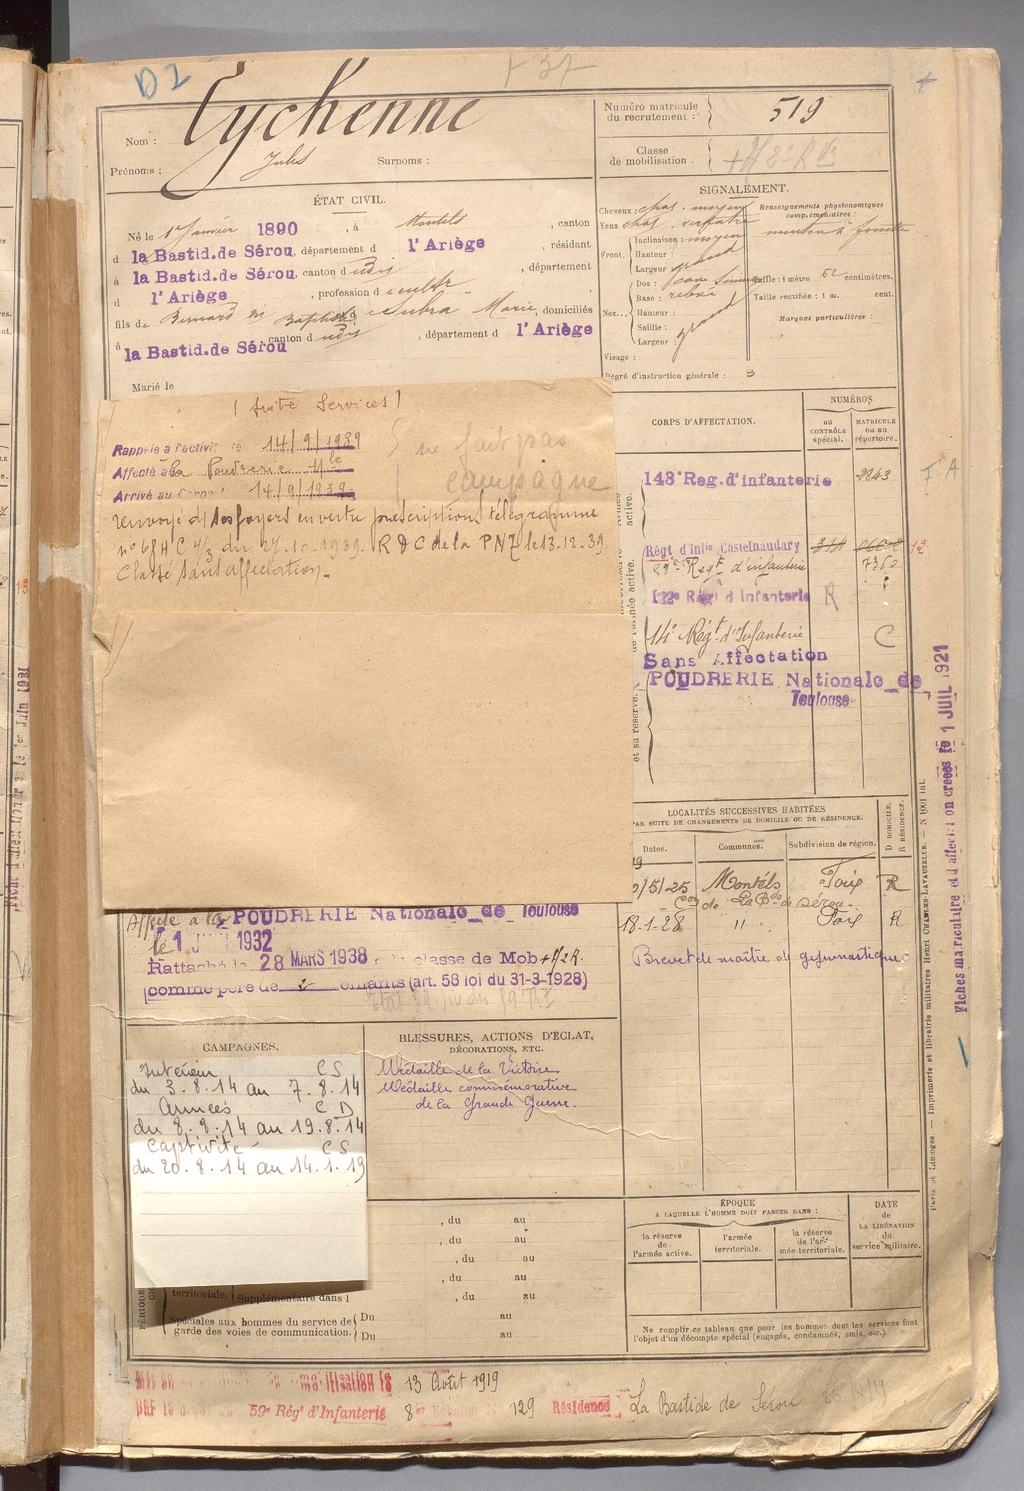 D2
F 37
Nom : Eychenne
Prénoms : Jules Surnoms :
Numéro matricule
du recrutement : 519
Classe
de mobilisation .
ÉTAT CIVIL.
Né le 1er Janvier 1890, à Montels, canton
d la Bastid.de Sérou, département d l'Ariège, résidant
à la Bastid.de Sérou, canton d udis, département
d l'Ariège, profession d
fils de Bernard dit Baptiste et d Subra Marie, domiciliés
à la Bastid.de Sérou, canton d udis, département d l'Ariège
Marié le
SIGNALEMENT.
Cheveux : chat. moyen
Yeux chat. verdatre
Front. Inclinaison : moyen
Hauteur :
Largeur grand
Nez... Dos : cave sinueux
Base : relevé
Hauteur :
Saillie :
Largeur : grand
Visage :
Degré d'instruction générale : 3
Renseignements physionomiques
complémentaires :
menton à fossette
Taille : 1 mètre 62 centimètres.
Taille rectifiée : 1 m. cent.
Marques particulières :
( Suite Services )
Rappelé à l'activité le 14/9/1939
Affecté à la Poudrerie Nle
Arrivé au Corps 14/9/1939
ne fait pas
campagne
renvoyé ds ses foyers en vertu prescriptions télégramme
n° 684 C 4/3 du 27.10.1939. RDC de la PNT le 13.12.39
Classé sans affectation.
CORPS D'AFFECTATION.
NUMÉROS
au
CONTRÔLE
spécial.
MATRICULE
ou au
répertoire.
143e Reg.d'infanterie 2843
F A
Régt d'Infie Castelnaudary
59e Regt d'infanterie 7350
122e Régt d'Infanterie R
14e Régt d'Infanterie C
Sans Affectation
POUDRERIE Nationale de
Toulouse
active.
et sa réserve.
LOCALITÉS SUCCESSIVES HABITÉES
PAR SUITE DE CHANGEMENTS DE DOMICILE OU DE RÉSIDENCE.
Dates.
Communes.
Subdivision de région.
D DOMICILE.
R RÉSIDENCE.
/5/25 Montéls Foix R
Con de La Bde de Sérou
18-1-28 " Foix R
Brevet de maître de gymnastique
Affecté à la POUDRERIE Nationale de Toulouse
le 1 1932
Rattaché le 28 MARS 1938 classe de Mob
comme père de 2 enfants (art. 58 loi du 31-3-1928)
CAMPAGNES.
Intérieur CS
du 3.8.14 au 7.8.14
Armées CD
du 8.8.14 au 19.8.14
Captivité CS
du 20.8.14 au 14.1.19
BLESSURES, ACTIONS D'ÉCLAT,
DÉCORATIONS, ETC.
Médaille de la Victoire
Médaille commémorative
de la Grande Guerre.
, du au
, du au
, du au
, du au
territoriale. Supplémentaire dans l , du au
Spéciales aux hommes du service de Du au
garde des voies de communication. Du au
ÉPOQUE
A LAQUELLE L'HOMME DOIT PASSER DANS :
la réserve
de
l'armée active.
l'armée
territoriale.
la réserve
de l'ar-
mée territoriale.
DATE
de
LA LIBÉRATION
du
service militaire.
Ne remplir ce tableau que pour les hommes dont les services font
l'objet d'un décompte spécial (engagés, condamnés, omis, etc.).
13 Août 1919
59e Régt d'Infanterie 8er Echelon No 129 Résidence La Bastide de Sérou
Paris et Limoges. — Imprimerie et librairie militaires Henri CHARLES-LAVAUZELLE. — N 1001 int.
Fiches matriculaire et d'affectation creées le 1 JUIL 1921